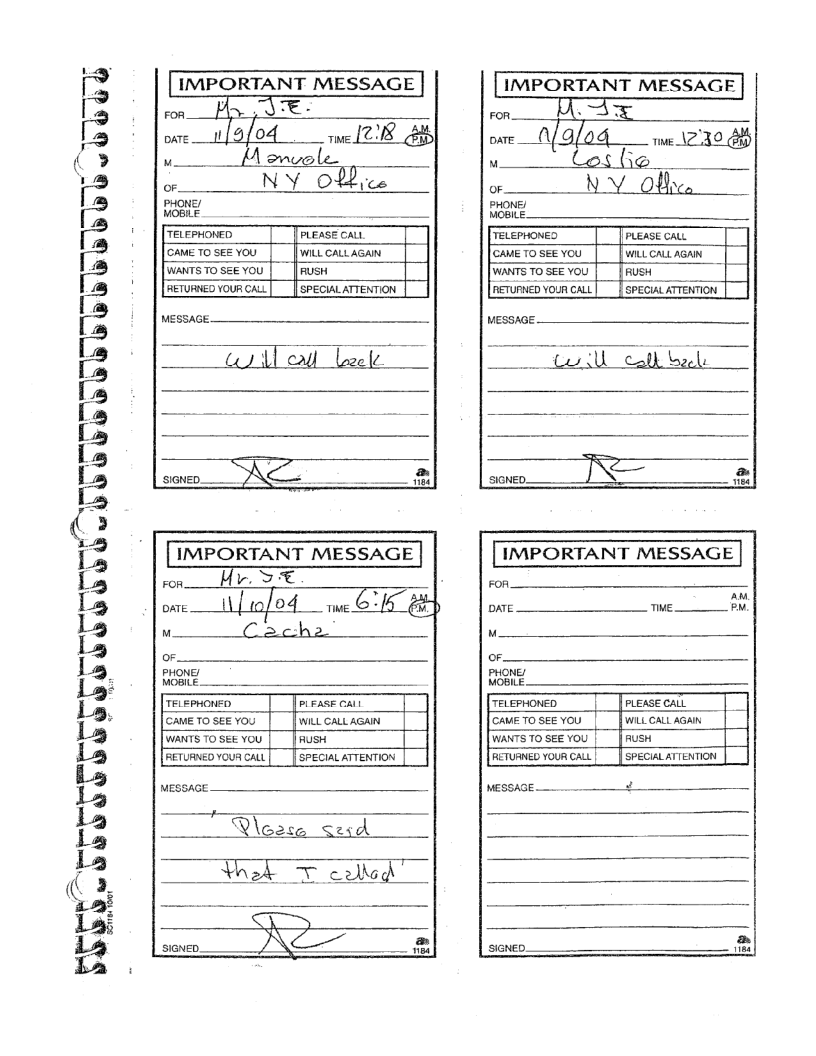 IMPORTANT MESSAGE
FOR Mr. J.E.
DATE 11/9/04 TIME 12:18 A.M. P.M.
M Manuole
OF NY Office
PHONE/
MOBILE
TELEPHONED PLEASE CALL
CAME TO SEE YOU WILL CALL AGAIN
WANTS TO SEE YOU RUSH
RETURNED YOUR CALL SPECIAL ATTENTION
MESSAGE
will call back
SIGNED
1184
IMPORTANT MESSAGE
FOR M. J.E
DATE 11/9/04 TIME 12:30 A.M. P.M.
M
OF NY Office
PHONE/
MOBILE
TELEPHONED PLEASE CALL
CAME TO SEE YOU WILL CALL AGAIN
WANTS TO SEE YOU RUSH
RETURNED YOUR CALL SPECIAL ATTENTION
MESSAGE
will call back
SIGNED
1184
IMPORTANT MESSAGE
FOR Mr. J.E.
DATE 11/10/04 TIME 6:15 A.M. P.M.
M Cacha
OF
PHONE/
MOBILE
TELEPHONED PLEASE CALL
CAME TO SEE YOU WILL CALL AGAIN
WANTS TO SEE YOU RUSH
RETURNED YOUR CALL SPECIAL ATTENTION
MESSAGE
"Please said
that I called"
SIGNED
1184
IMPORTANT MESSAGE
FOR
A.M.
DATE TIME P.M.
M
OF
PHONE/
MOBILE
TELEPHONED PLEASE CALL
CAME TO SEE YOU WILL CALL AGAIN
WANTS TO SEE YOU RUSH
RETURNED YOUR CALL SPECIAL ATTENTION
MESSAGE
SIGNED
1184
SC1184 10/01